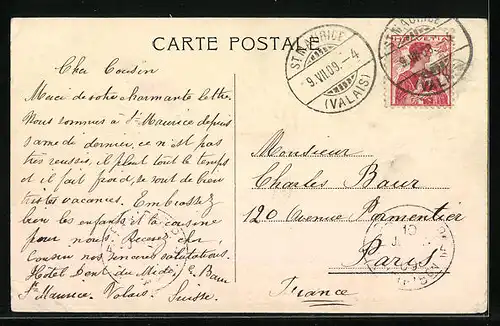 CARTE POSTALE
ST MAURICE
9.VII.09.-4
(VALAIS)
ST MAURICE
9.VII.09
VALAIS
Cher Cousin
Merci de votre charmante lettre.
Nous sommes à St Maurice depuis
samedi dernier, ce n'est pas
très reussi, il pleut tout le temps
et il fait froid, se sont de bien
tristes vacances. Embrassez
bien les enfants et la cousine
pour nous. Recevez cher
cousin nos sinceres salutations.
Hôtel Dent du Midi, E. Baur
St Maurice. Valais. Suisse.
Monsieur
Charles Baur
120 Avenue Parmentier
Paris
France
10
09